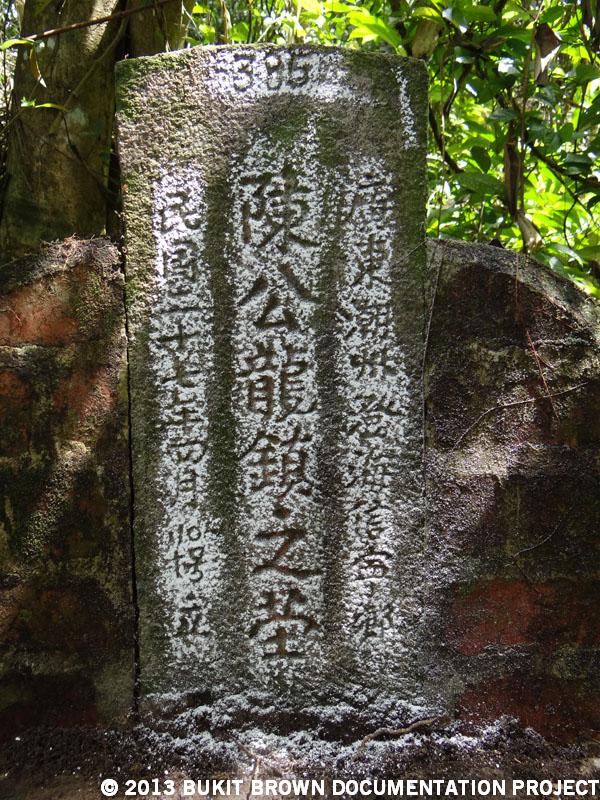 385
廣東潮州澄海信寧鄉
陳公龍鎮之塋
民国二十七年四月 立
© 2013 BUKIT BROWN DOCUMENTATION PROJECT